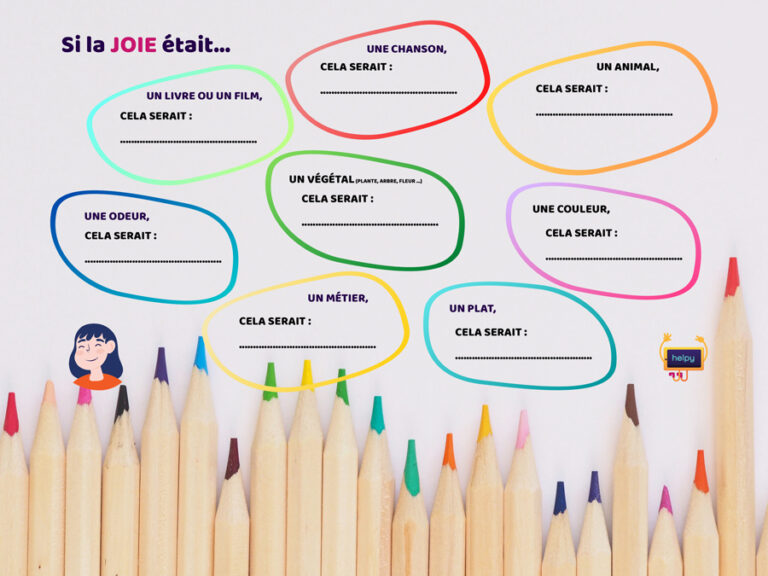 Si la JOIE était...
UNE CHANSON,
CELA SERAIT :
UN ANIMAL,
CELA SERAIT :
UN LIVRE OU UN FILM,
CELA SERAIT :
UN VÉGÉTAL (PLANTE, ARBRE, FLEUR ...)
CELA SERAIT :
UNE ODEUR,
CELA SERAIT :
UNE COULEUR,
CELA SERAIT :
UN MÉTIER,
CELA SERAIT :
UN PLAT,
CELA SERAIT :
helpy